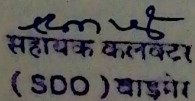 सहायक कलक्टर
(SDO) बाड़मेर